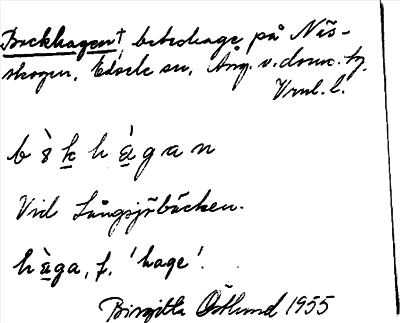 Bockhagen†, beteshage på Näs-
skogen, Edsele sn, Ång. v. doms. tg.
Vml. l.
b ò̀ k h à g a n
Vid Långsjöbäcken.
hàga, f. 'hage'.
Birgitta Östlund 1955